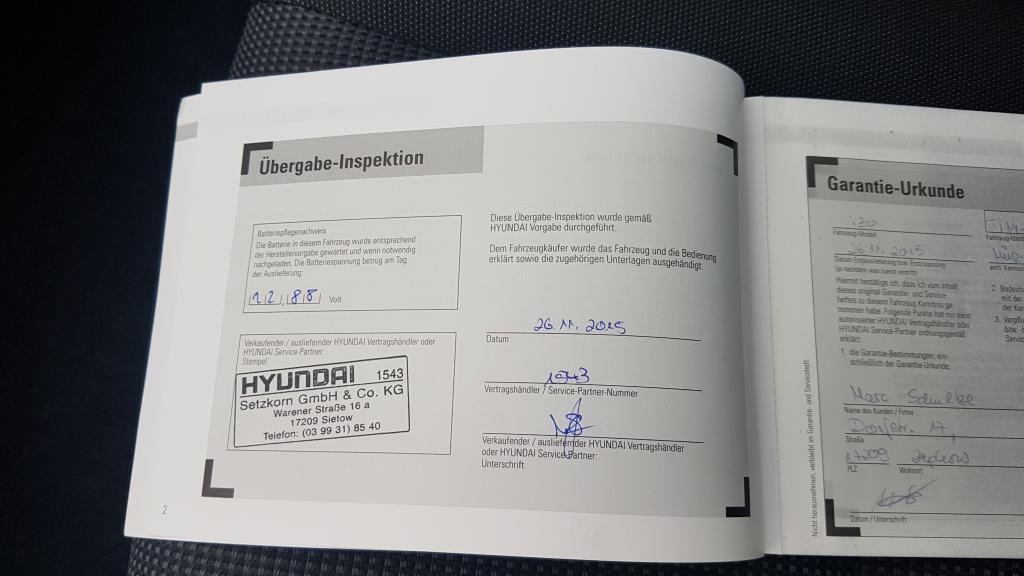 Übergabe-Inspektion
Batteriepflegenachweis
Die Batterie in diesem Fahrzeug wurde entsprechend
der Herstellervorgabe gewartet und wenn notwendig
nachgeladen. Die Batteriespannung betrug am Tag
der Auslieferung:
12,88 Volt
Verkaufender / ausliefernder HYUNDAI Vertragshändler oder
HYUNDAI Service-Partner:
Stempel
HYUNDAI 1543
Setzkorn GmbH & Co. KG
Warener Straße 16 a
17209 Sietow
Telefon: (03 99 31) 85 40
Diese Übergabe-Inspektion wurde gemäß
HYUNDAI Vorgabe durchgeführt.
Dem Fahrzeugkäufer wurde das Fahrzeug und die Bedienung
erklärt sowie die zugehörigen Unterlagen ausgehändigt.
26.11.2015
Datum
1543
Vertragshändler / Service-Partner-Nummer
Verkaufender / ausliefernder HYUNDAI Vertragshändler
oder HYUNDAI Service-Partner:
Unterschrift
2
Garantie-Urkunde
i20
Fahrzeug-Modell
26.11.2015
Datum Erstauslieferung bzw. Erstzulassung
(je nachdem was zuerst eintritt)
Hiermit bestätige ich, dass ich vom Inhalt
dieses original Garantie- und Service-
heftes zu diesem Fahrzeug Kenntnis ge-
nommen habe. Folgende Punkte hat mir mein
autorisierter HYUNDAI Vertragshändler oder
HYUNDAI Service-Partner ordnungsgemäß
erklärt:
1. die Garantie-Bestimmungen, ein-
schließlich der Garantie-Urkunde.
2.
mit der
der
3.
bzw.
Marc
Name des Kunden / Firma
Dorfstr. 17
Straße
17209
PLZ Wohnort
Datum / Unterschrift
Nicht herausnehmen, verbleibt im Garantie- und Serviceheft.